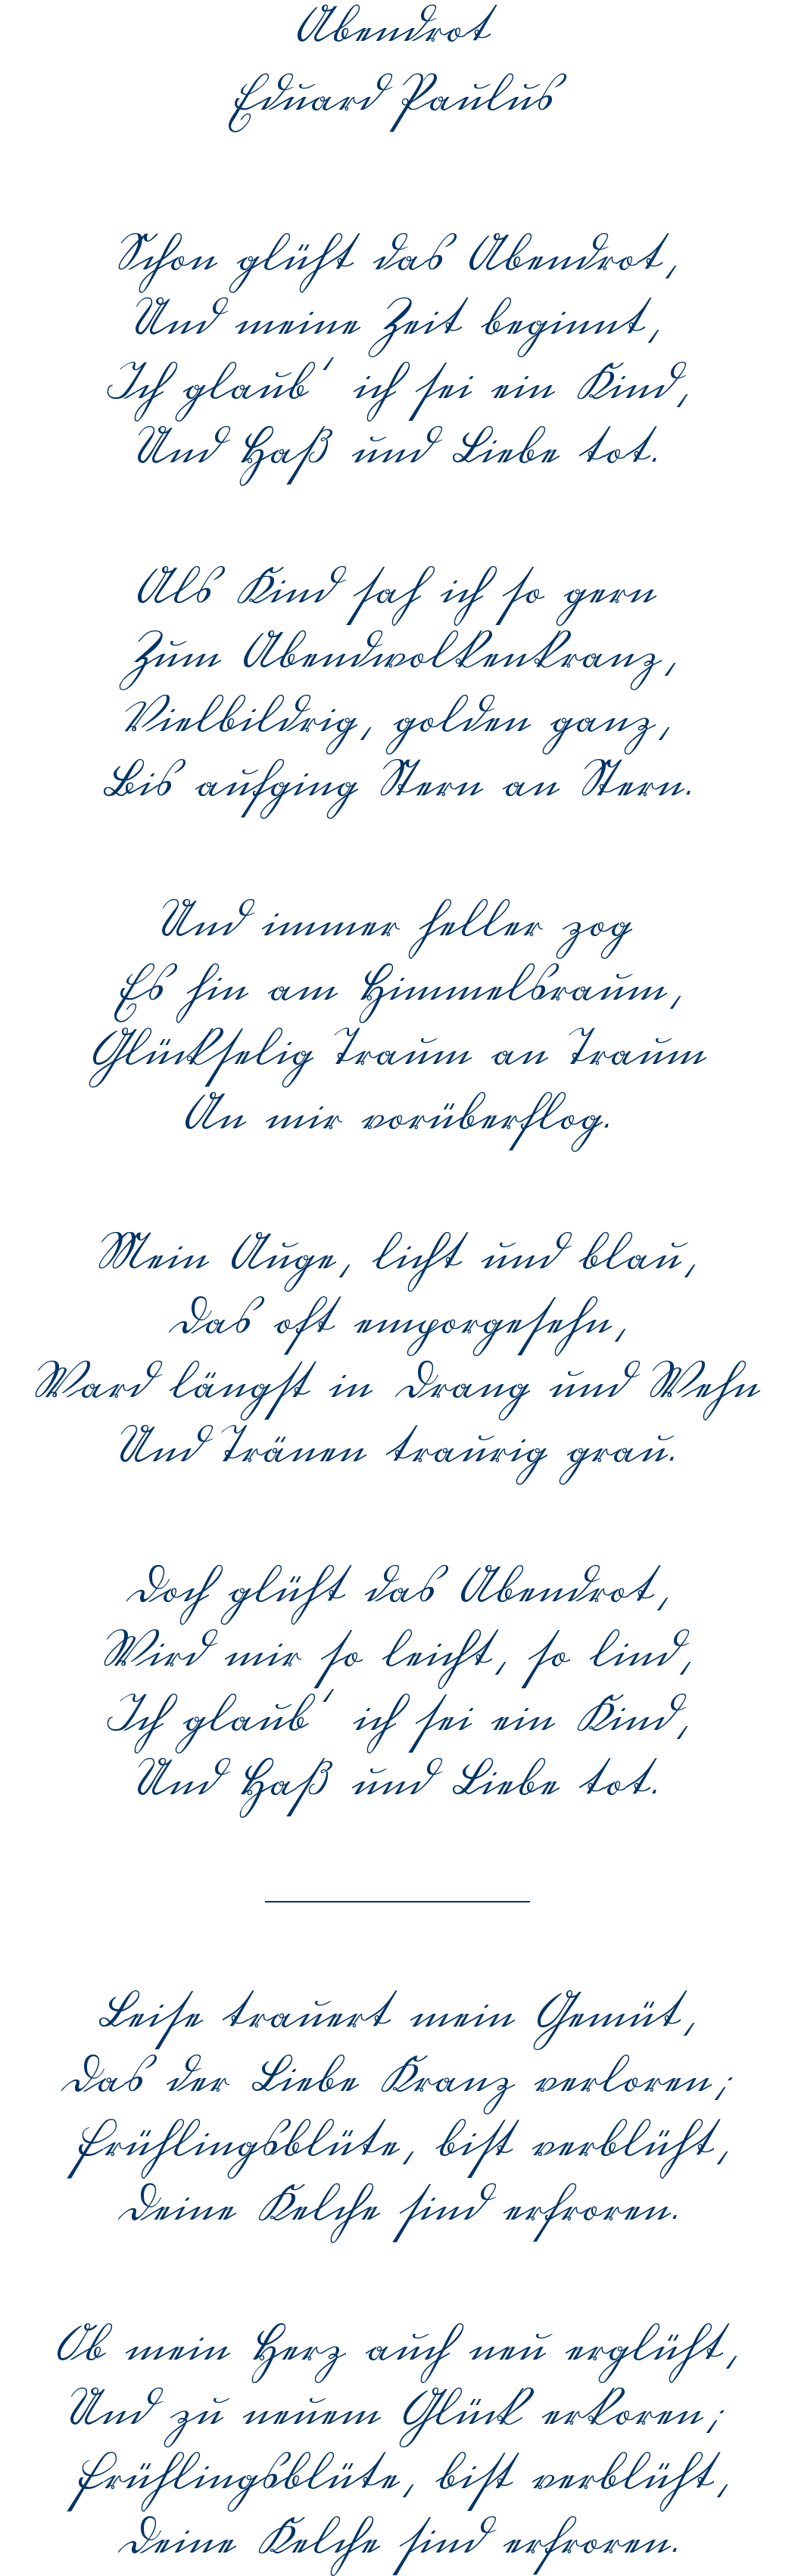 Abendrot
Eduard Paulus
Schon glüht das Abendrot,
Und meine Zeit beginnt,
Ich glaub' ich sei ein Kind,
Und Haß und Liebe tot.
Als Kind sah ich so gern
Zum Abendwolkenkranz,
Vielbildrig, golden ganz,
Bis aufging Stern an Stern.
Und immer heller zog
Es hin am Himmelsraum,
Glückselig Traum an Traum
An mir vorüberflog.
Mein Auge, licht und blau,
Das oft emporgesehn,
Ward längst in Drang und Wehn
Und Tränen traurig grau.
Doch glüht das Abendrot,
Wird mir so leicht, so lind,
Ich glaub' ich sei ein Kind,
Und Haß und Liebe tot.
Leise trauert mein Gemüt,
Das der Liebe Kranz verloren;
Frühlingsblüte, bist verblüht,
Deine Kelche sind erfroren.
Ob mein Herz auch neu erglüht,
Und zu neuem Glück erkoren;
Frühlingsblüte, bist verblüht,
Deine Kelche sind erfroren.